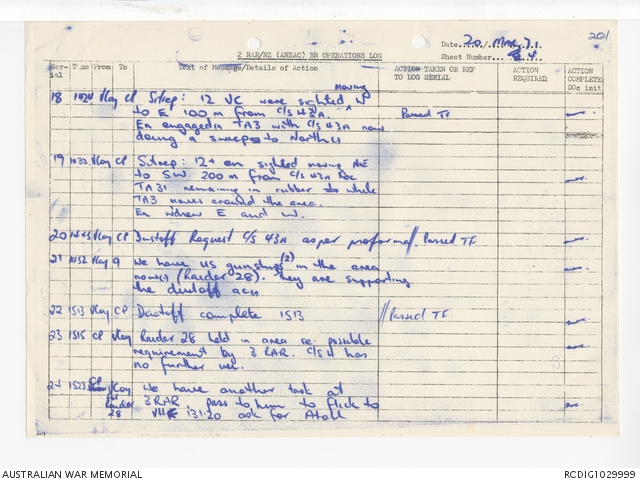 201
2 RAR/NZ (ANZAC) BN OPERATIONS LOG
Date 20 / Mar / 71
Sheet Number 4
Serial Time From To Text of Message/Details of Action ACTION TAKEN OR REF TO LOG SERIAL ACTION REQUIRED ACTION COMPLETE DOs init
18 1424 VCoy CP Sitrep: 12 VC were sighted moving W
to E 100 m from C/S 43A. Passed TF
En engaged in TA3 with C/S 43A now
doing a sweep to North
19 1432 VCoy CP Sitrep: 12+ en sighted moving NE
to SW. 200 m from C/S 43A
TA31 remaining in rubber while
TA3 moves around the area.
En withdrew E and W.
20 1445 VCoy CP Dustoff Request C/S 43A as per proforma // Passed TF
21 1452 VCoy 9 We have US gunships (2) in the area
now (Raider 28). They are supporting
the dustoff
22 1513 VCoy CP Dustoff complete 1513 // Passed TF
23 1515 CP VCoy Raider 28 held in area re. possible
requirement by 3 RAR. C/S 4 has
no further use.
24 1523 CP VCoy We have another task at
for Raider 28 3 RAR pass to him to flick to
VHF 131.20 ask for Atoll
AUSTRALIAN WAR MEMORIAL
RCDIG1029999